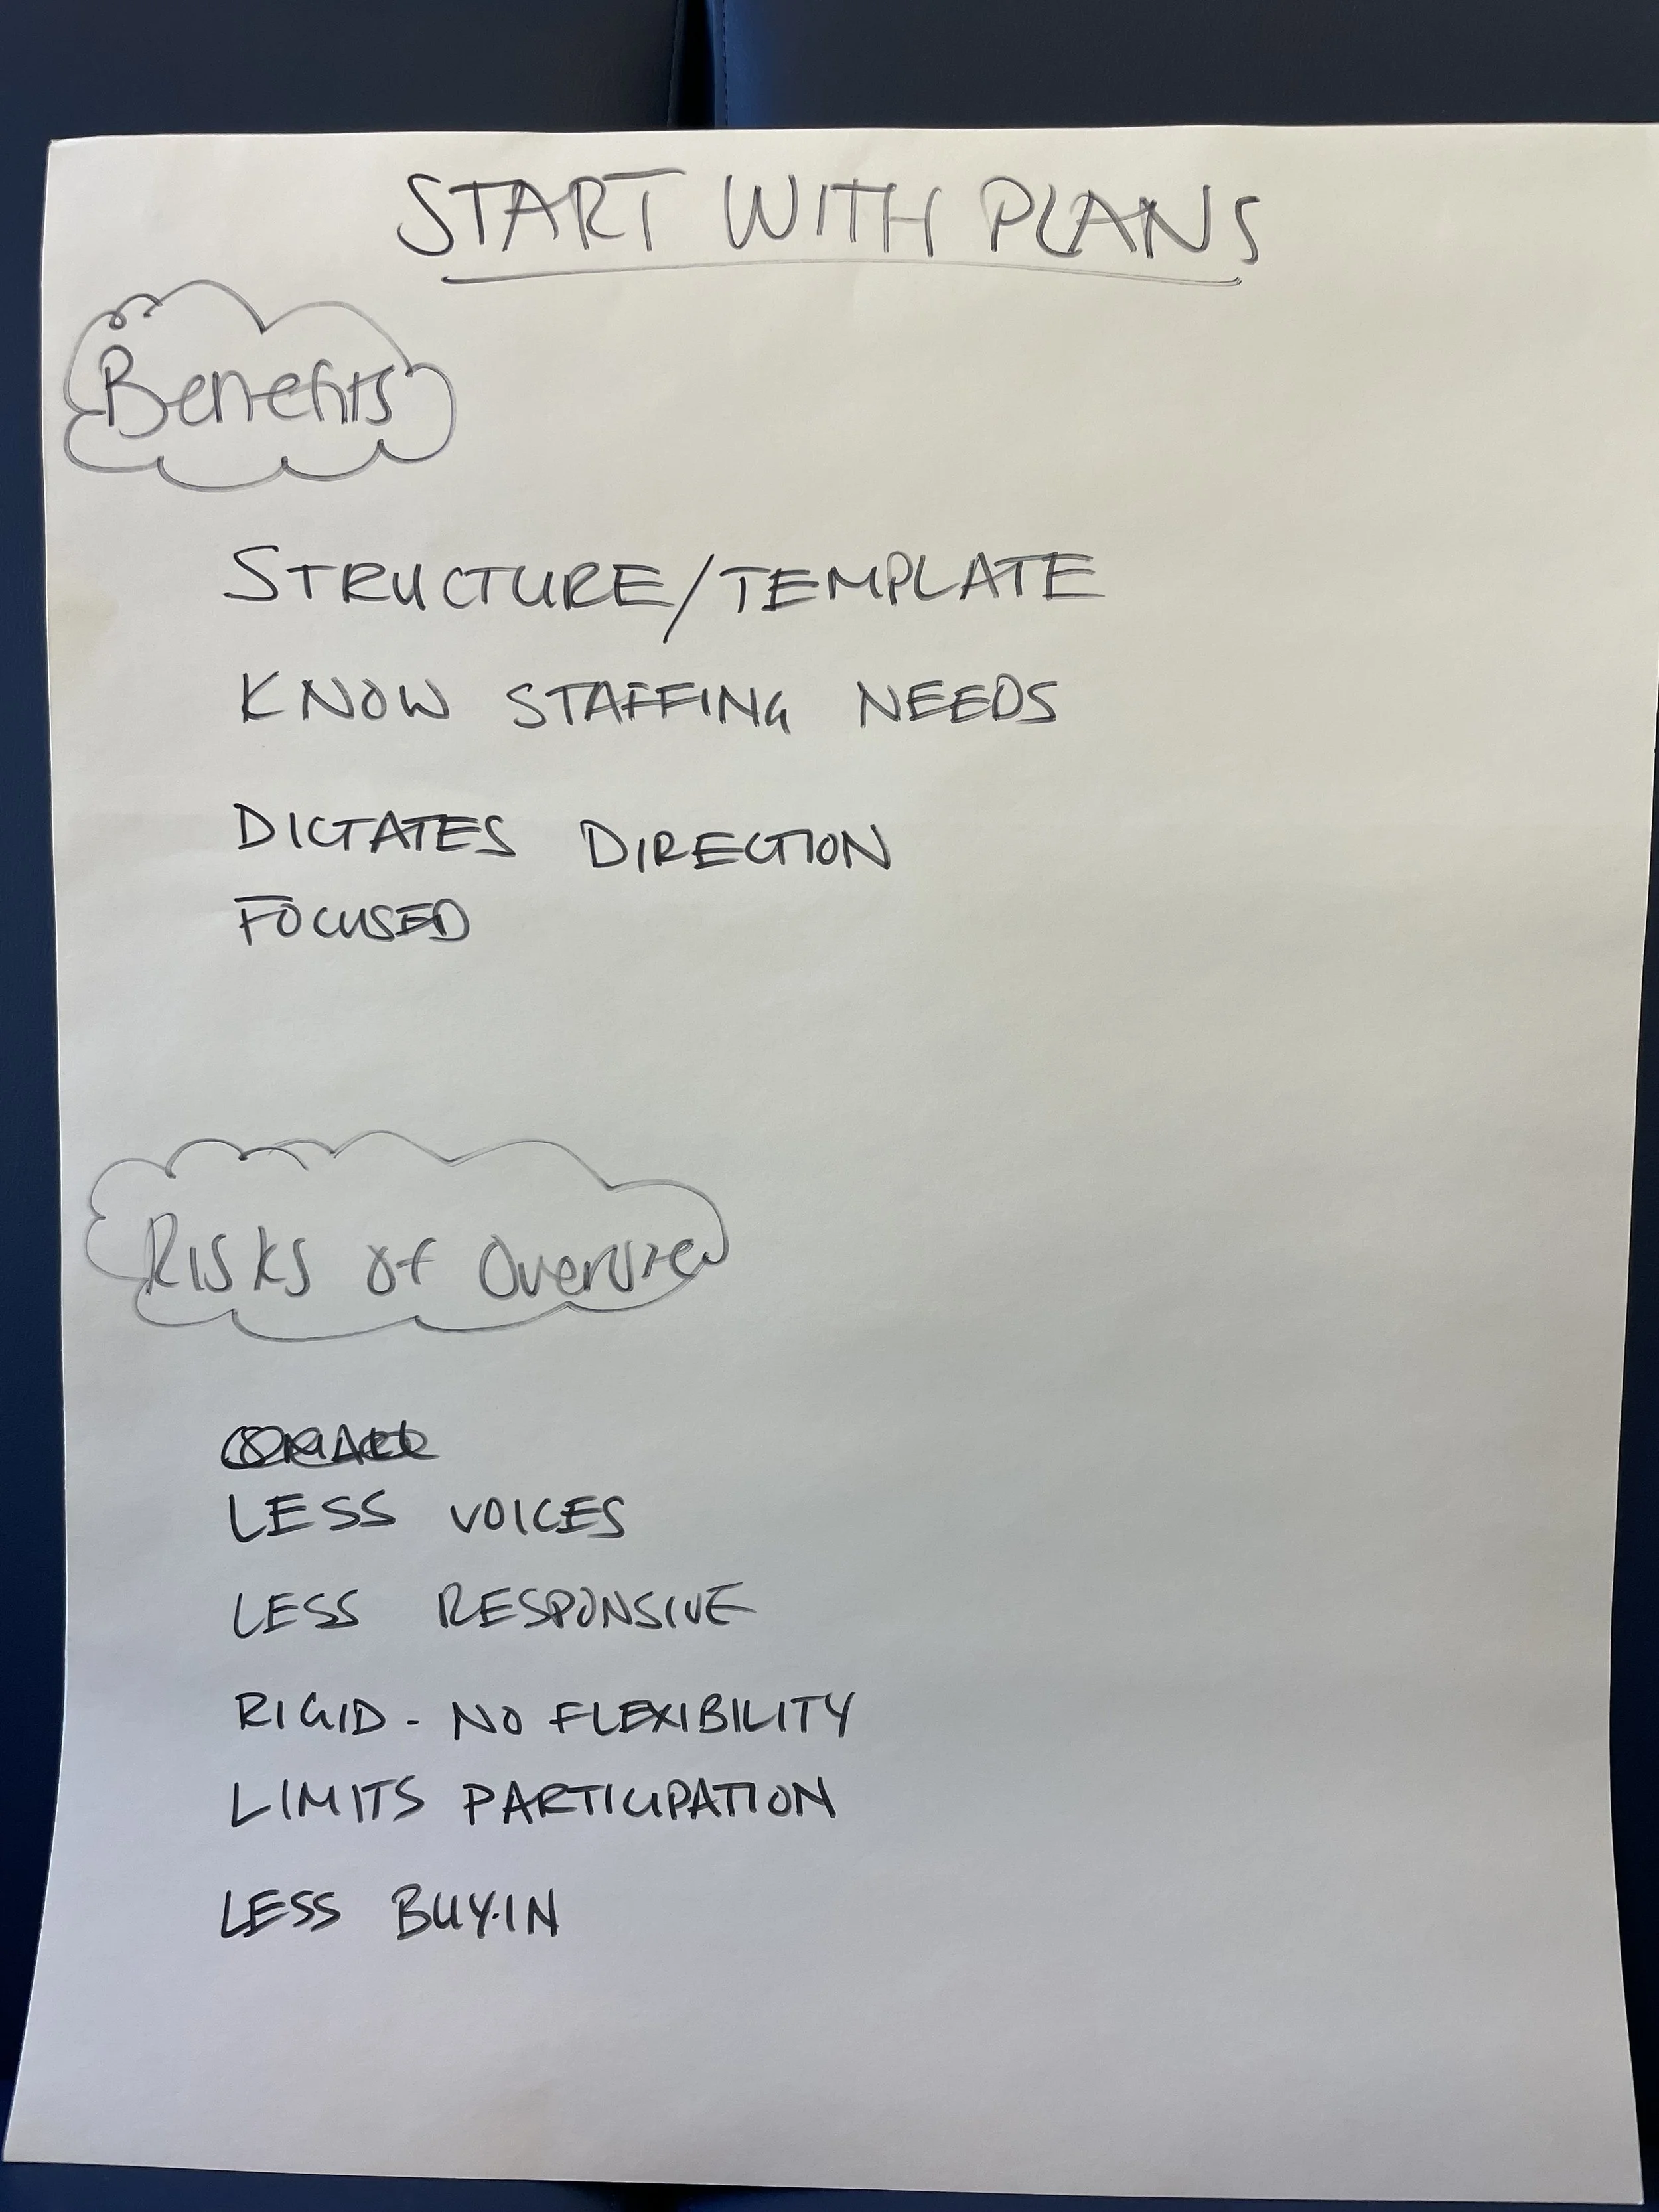 START WITH PLANS
Benefits
STRUCTURE/TEMPLATE
KNOW STAFFING NEEDS
DICTATES DIRECTION
FOCUSED
Risks of Overuse
LESS VOICES
LESS RESPONSIVE
RIGID - NO FLEXIBILITY
LIMITS PARTICIPATION
LESS BUY-IN